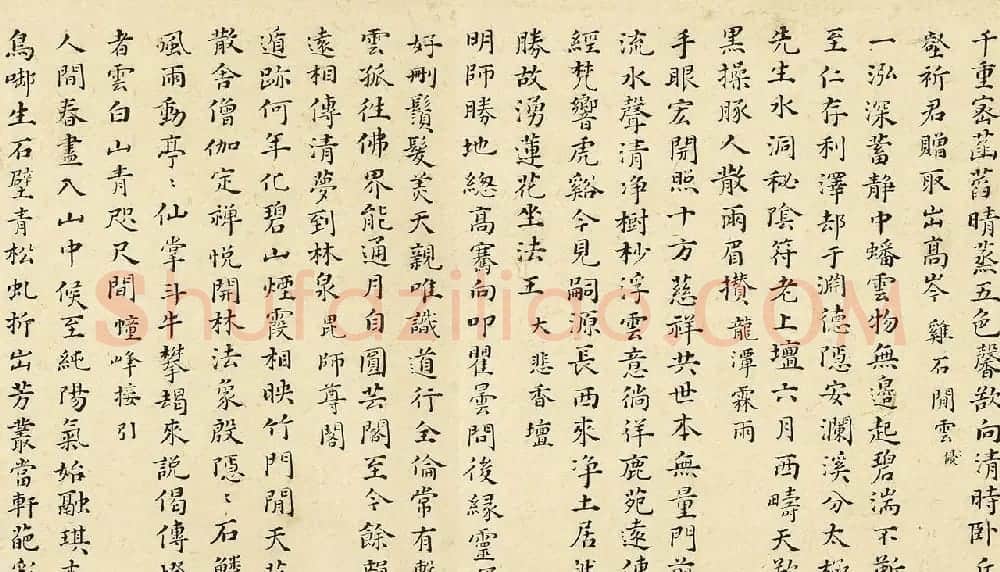 千重密菡萏晴蒸五色馨欲向清時卧丘
壑祈君贈取出髙岑 雞石閒雲
一泓深蓄静中蟠雲物無邉起碧湍不
至仁存利澤却于渊德隠安瀾溪分太極
先生水洞秘陰符老上壇六月西疇天
黒操豚人散雨眉攢 龍潭霖雨
手眼宏開照十方慈祥共世本無量門前
流水聲清净樹杪浮雲意徜徉鹿苑遠傳
經梵響虎谿今見嗣源長西來净土居
勝故湧蓮花坐法王 大悲香壇
明師勝地緫髙騫向叩瞿曇問後縁靈
好刪鬚髮美天親唯識道行全倫常有
雲孤往佛界能通月自圓芸閣至今餘
遠相傳清夢到林泉 毘師尊閣
遁跡何年化碧山煙霞相映竹門閒天
散舍僧伽定禅悦開林法象殷隠：石
風雨動亭：仙掌斗牛攀朅來説偈傳
者雲白山青咫尺間 幢峰接引
人間春晝入山中候至純陽氣始融琪
鳥啣生石壁青松虬折出芳叢當軒葩彩
Shufaziliao.COM